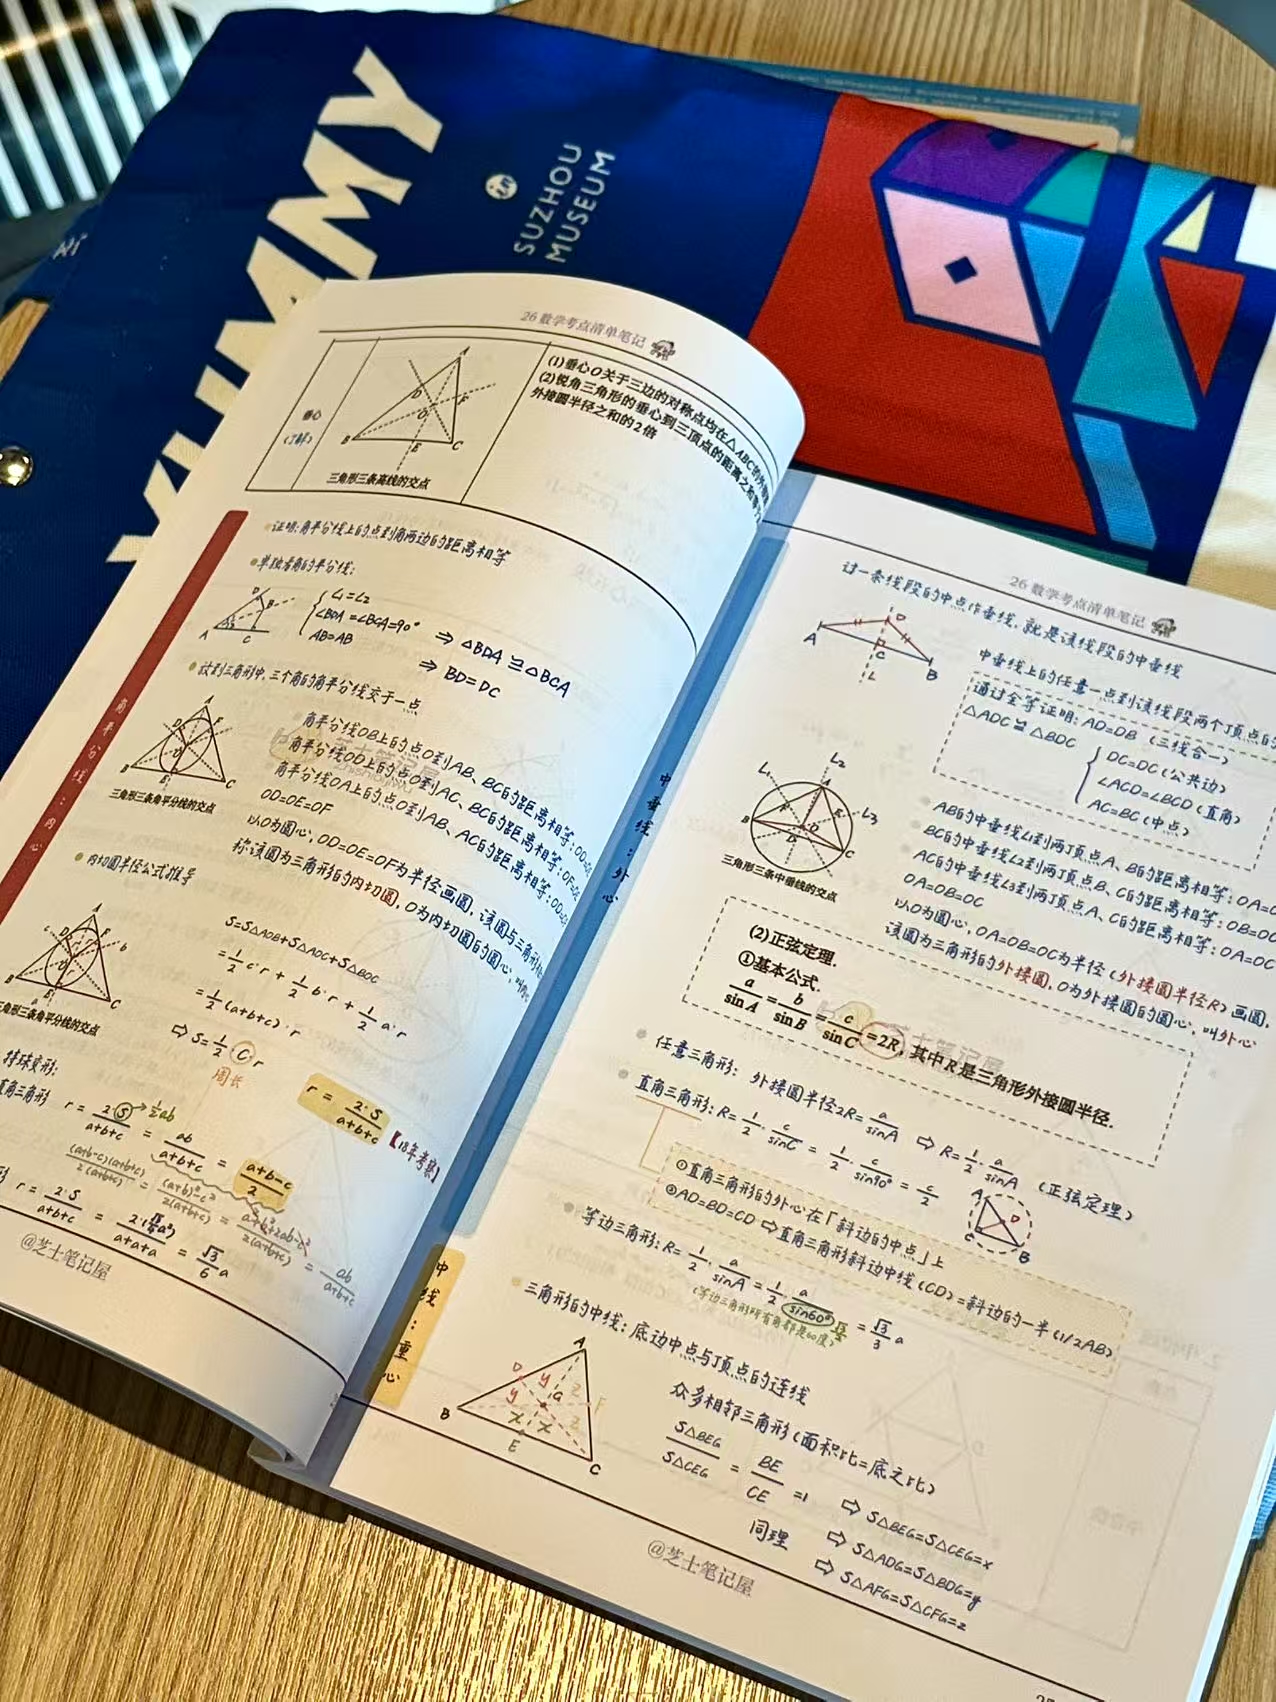 YUMMY
SUZHOU
MUSEUM
26 数学考点清单笔记
垂心
(了解)
A
D
F
O
B
E
C
三角形三条高线的交点
(1)垂心O关于三边的对称点均在△ABC的外接
(2)锐角三角形的垂心到三顶点的距离之和等于
外接圆半径之和的2倍
角平分线:内心
证明:角平分线上的点到角两边的距离相等
单独看角的平分线:
D
B
A
C
∠1=∠2
∠BDA=∠BCA=90°
AB=AB
⇒ △BDA≌△BCA
⇒ BD=DC
放到三角形中,三个角的角平分线交于一点
A
D
F
O
B
E
C
三角形三条角平分线的交点
角平分线OB上的点O到AB、BC的距离相等:OD=OE
角平分线OD上的点O到AC、BC的距离相等:OF=OE
角平分线OA上的点O到AB、AC的距离相等:OD=
OD=OE=OF
以O为圆心,OD=OE=OF为半径画圆,该圆与三角形
称该圆为三角形的内切圆,O为内切圆的圆心,叫
内切圆半径公式推导
A
c
D
F
b
O
B
a
E
C
三角形三条角平分线的交点
S=S△AOB+S△AOC+S△BOC
=1/2 c·r + 1/2 b·r + 1/2 a·r
=1/2 (a+b+c)·r
⇒ S=1/2 C r
周长
r = 2·S/a+b+c 【18年考察】
特殊变形:
直角三角形 r = 2S/a+b+c = ab/a+b+c = a+b-c/2
→1/2ab
(a+b-c)(a+b+c)/2(a+b+c) = (a+b)²-c²/2(a+b+c) = a²+b²+2ab-c²/2(a+b+c) = ab/a+b+c
形 r = 2·S/a+b+c = 2(√3/4a²)/a+a+a = √3/6 a
@芝士笔记屋
26 数学考点清单笔记
中垂线:外心
过一条线段的中点作垂线,就是该线段的中垂线
D
A
C
B
L
中垂线上的任意一点到该线段两个顶点的
通过全等证明: AD=DB (三线合一)
△ADC≌△BDC
DC=DC (公共边)
∠ACD=∠BCD (直角)
AC=BC (中点)
L1
L2
L3
A
B
C
D
三角形三条中垂线的交点
AB的中垂线L1到两顶点A、B的距离相等: OA=O
BC的中垂线L2到两顶点B、C的距离相等: OB=OC
AC的中垂线L3到两顶点A、C的距离相等: OA=OC
OA=OB=OC
以O为圆心,OA=OB=OC为半径(外接圆半径R)画圆,
该圆为三角形的外接圆,O为外接圆的圆心,叫外心
(2)正弦定理.
①基本公式.
a/sinA = b/sinB = c/sinC =2R, 其中R是三角形外接圆半径.
任意三角形: 外接圆半径2R= a/sinA ⇒ R= 1/2 · a/sinA (正弦定理)
直角三角形: R= 1/2 · c/sinC = 1/2 · c/sin90° = c/2
①直角三角形的外心在「斜边的中点」上
②AD=BD=CD ⇒直角三角形斜边中线(CD)=斜边的一半(1/2AB)
A
D
C
B
等边三角形: R= 1/2 · a/sinA = 1/2 · a/sin60° = √3/3 a
(等边三角形所有角都是60度) √3/2
中线:重心
三角形的中线: 底边中点与顶点的连线
A
D
y
y
G
z
z
F
B
x
x
E
C
众多相邻三角形(面积比=底之比)
S△BEG/S△CEG = BE/CE =1 ⇒ S△BEG=S△CEG=x
同理 ⇒ S△ADG=S△BDG=y
⇒ S△AFG=S△CFG=z
@芝士笔记屋